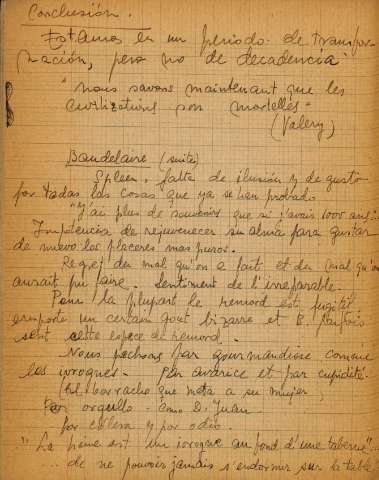 Conclusión.
Estamos en un periodo de transfor-
mación, pero no de decadencia
"nous savons maintenant que les
civilizations son mortelles"
(Valery)
Baudelaire (suite)
Spleen. falta de ilusión y de gusto
por todas las cosas que ya se han probado
"J'ai plus de souvenirs que si j'avais 1000 ans".
Impotencia de rejuvenecer su alma para gustar
de nuevo los placeres mas puros.
Regret du mal qu'on a fait et du mal qu'on
aurait pu faire. sentiment de l'irreparable.
Pour la plupart le remord est fugitif
un certain gout bizarre et B.
sent cette espece de remord.
Nous pechons par gourmandise comme
les ivrognes. Par avarice et par cupidité.
El borracho que mata a su mujer,
Por orgullo. como D. Juan
por colera y por odio.
"La haine est un ivrogne au fond d'une taberne"
... de ne pouvoir jamais s'endormir sur la table"